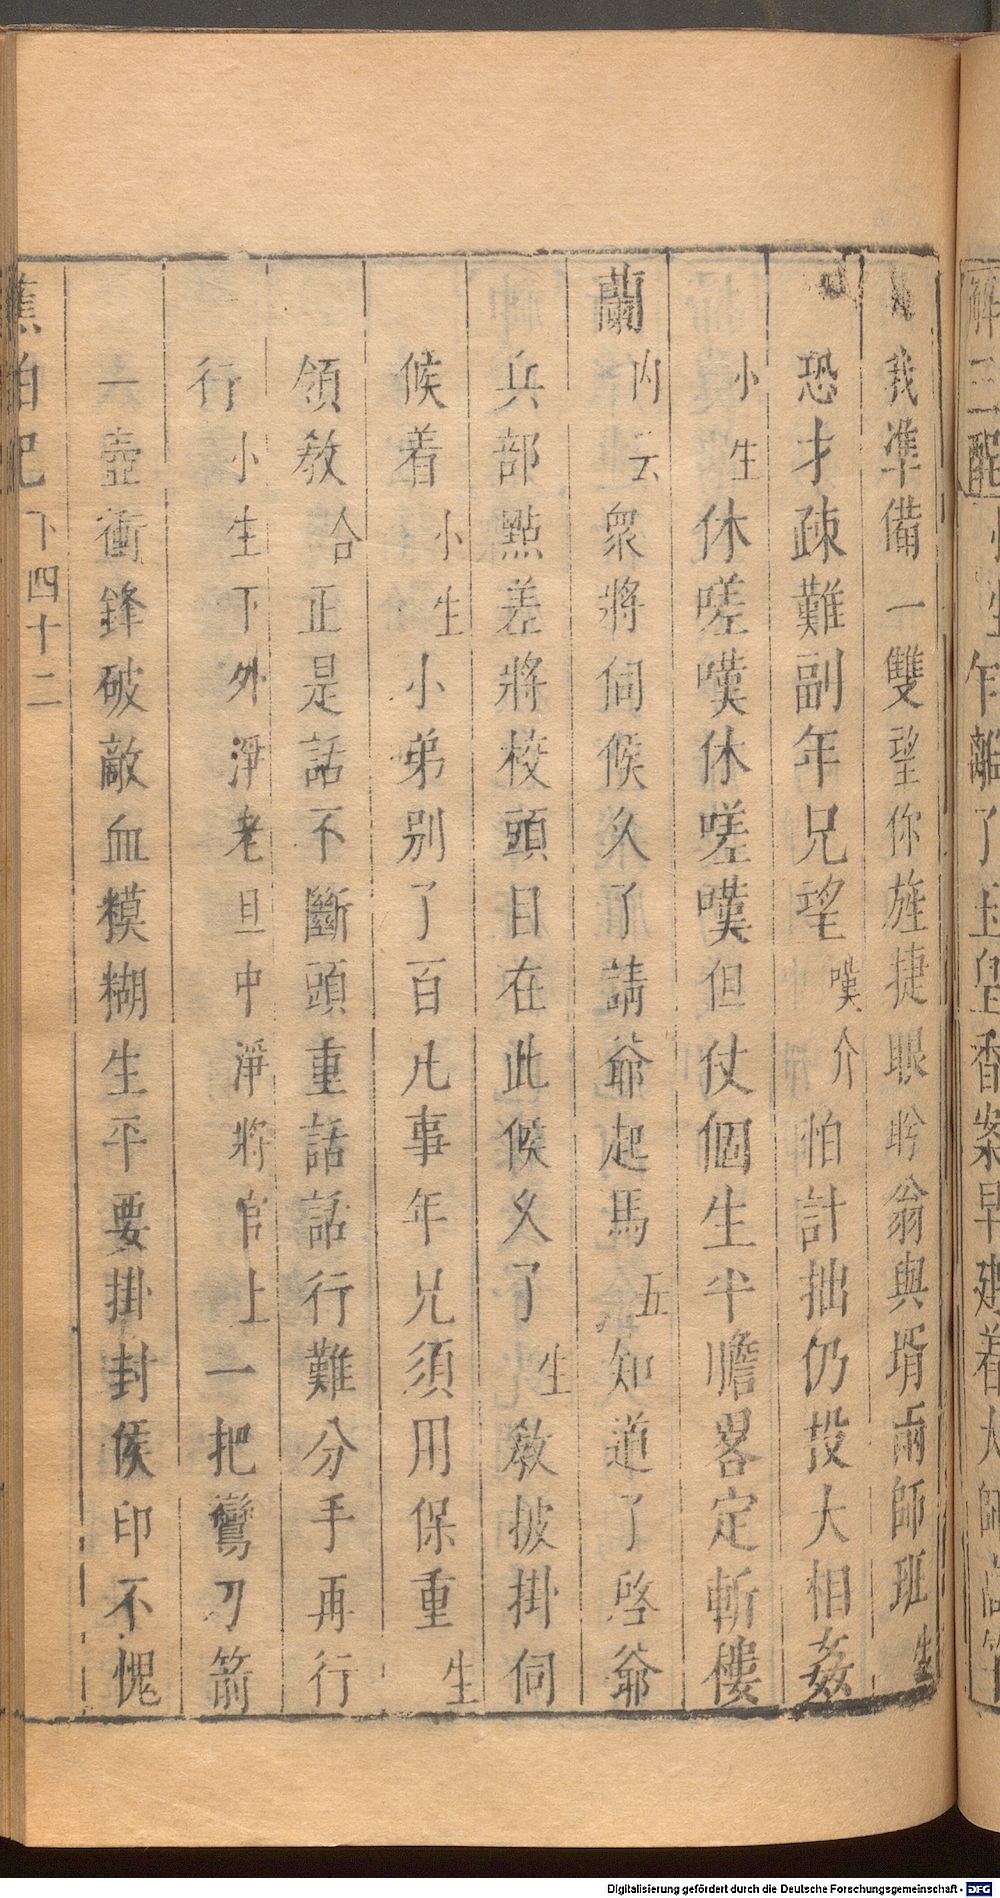 解三酲 小生 乍離了玉皇香案早建着大師
我準備一雙望你旌捷眼盼翁與壻兩師班 生
恐才疎難副年兄望 嘆介 怕計拙仍投大相姦
小生 休嗟嘆休嗟嘆但仗個生平膽畧定斬樓
蘭 內云 衆將伺候久了請爺起馬 五 知道了啓爺
兵部點差將校頭目在此候久了 生 敎披掛伺
候着 小生 小弟別了百凡事年兄須用保重 生
領敎 合 正是話不斷頭重話話行難分手再行
行 小生下外淨老旦中淨將官上 一把鸞刀箭
一壺衝鋒破敵血糢糊生平要掛封侯印不愧
蕉帕記 下四十二
Digitalisierung gefördert durch die Deutsche Forschungsgemeinschaft - DFG